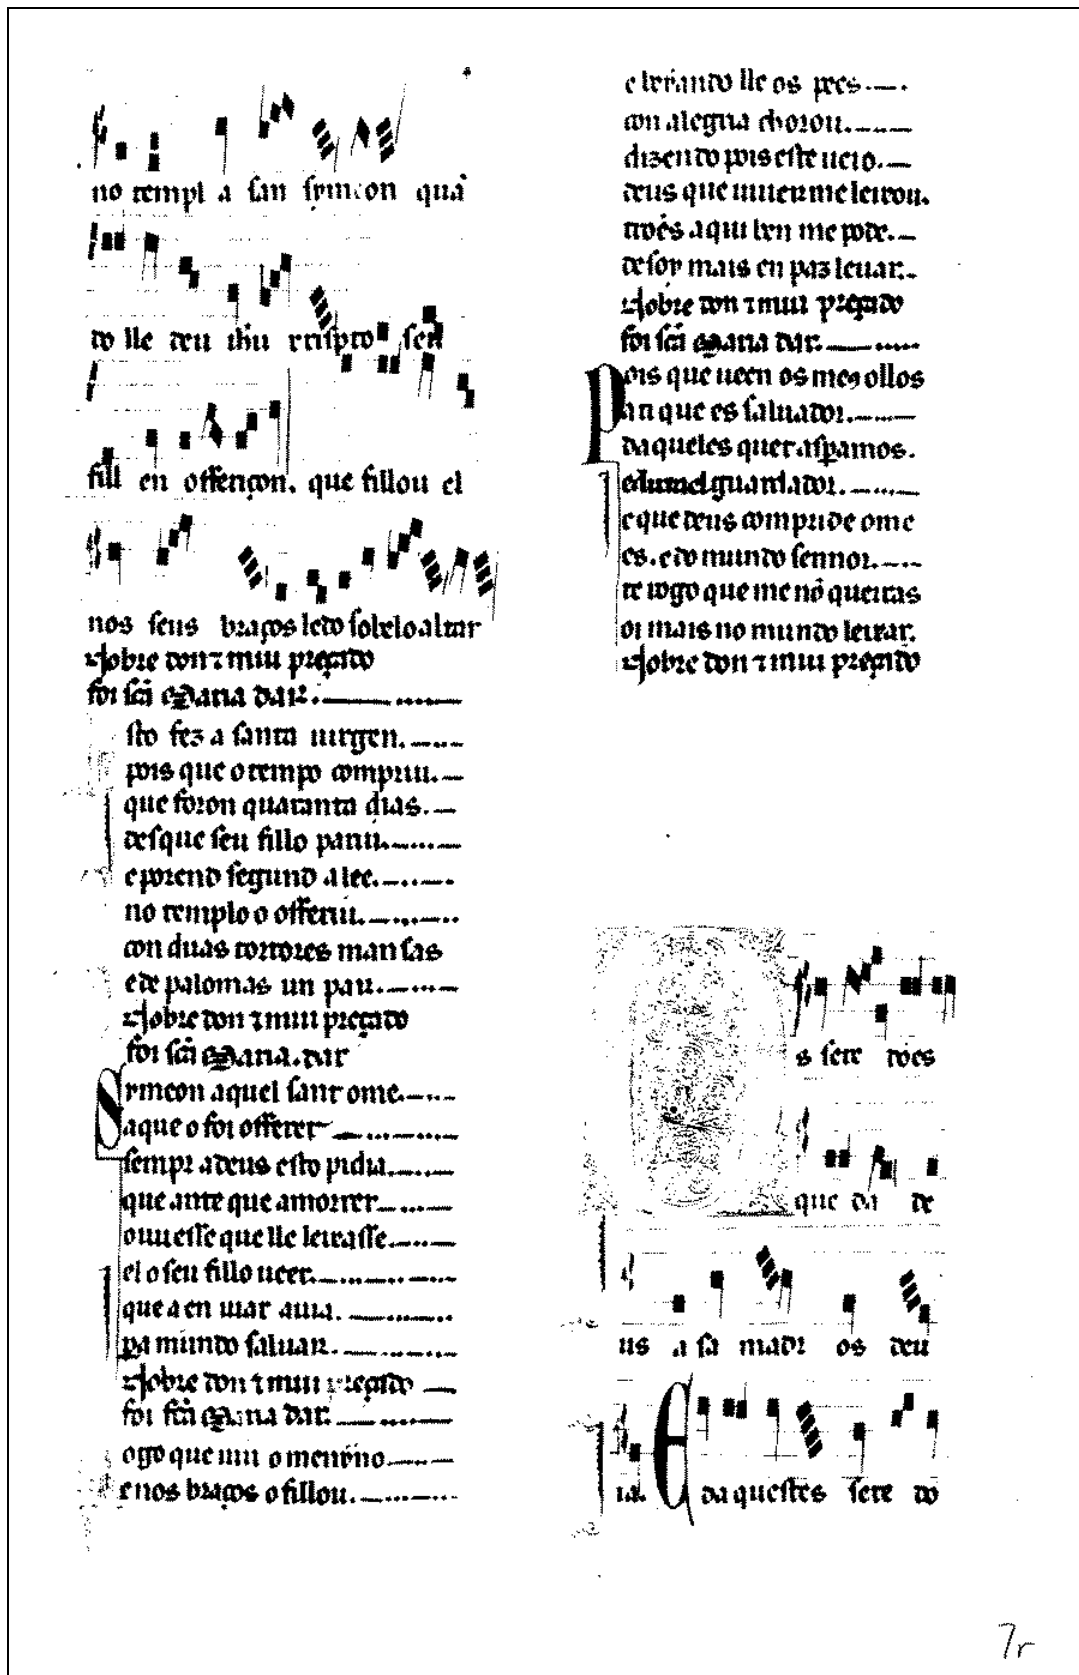 no templ a san symeon quā
do lle deu ihū xristo sen
fill en offerçon. que fillou el
nos seus braços ledo sobelo altar
Nobre don ⁊ mui preçado
foi scā Maria dar.
sto fez a santa uirgen.
pois que o tempo compriu.
que foron quaranta dias.
desque seu fillo pariu.
e porend segund a lee.
no templo o offeriu.
con duas tortores mansas
e de palomas un par.
Nobre don ⁊ mui preçado
foi scā Maria. dar
Symeon aquel sant ome.
a que o foi offerer
sempr a deus esto pidia.
que ante que a morrer
ouuesse que lle leixasse.
el o seu fillo ueer.
que a en uiar auia.
pa mundo saluar.
Nobre don ⁊ mui preçado
foi scā Maria dar.
ogo que uiu o menỹno
e nos braços o fillou.
e beiiando lle os pees
con alegria chorou.
dizendo pois este ueio.
deus que uiuer me leixou.
tres aqui ben me pode.
des oy mais en paz leuar.
Nobre don ⁊ mui preçado
foi scā Maria dar.
Pois que ueen os meꝯ ollos
an que es saluador.
daqueles quer asperamos.
guardador.
e que deus comprid e ome
es. e do mundo sennor.
te rogo que me nō queiras
oi mais no mundo leixar.
Nobre don ⁊ mui preçado
s sete dões
que da de
us a sa madr os deu
ia. E daquestes sete do
7r